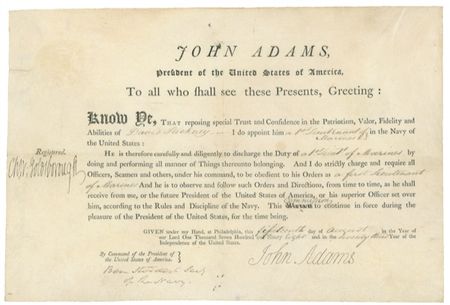 JOHN ADAMS,
President of the United States of America,
To all who shall see these Presents, Greeting:
Know Ye, THAT reposing special Trust and Confidence in the Patriotism, Valor, Fidelity and
Abilities of I do appoint him a 1st Lieutenant of Marines in the Navy of
the United States:
HE is therefore carefully and diligently to discharge the Duty of a Lieut. of Marines by
doing and performing all manner of Things thereunto belonging. And I do strictly charge and require all
Officers, Seamen and others, under his command, to be obedient to his Orders as a first Lieutenant
of Marines And he is to observe and follow such Orders and Directions, from time to time, as he shall
receive from me, or the future President of the United States of America, or his superior Officer set over
him, according to the Rules and Discipline of the Navy. This Commission to continue in force during the
pleasure of the President of the United States, for the time being.
Registered.
Chas. Goldsborough
GIVEN under my Hand, at Philadelphia, this fifteenth day of August in the Year of
our Lord One Thousand Seven Hundred and ninety eight and in the twenty third Year of the
Independence of the United States.
By Command of the President of
the United States of America.
John Adams
Ben Stoddert Secy
of the Navy.